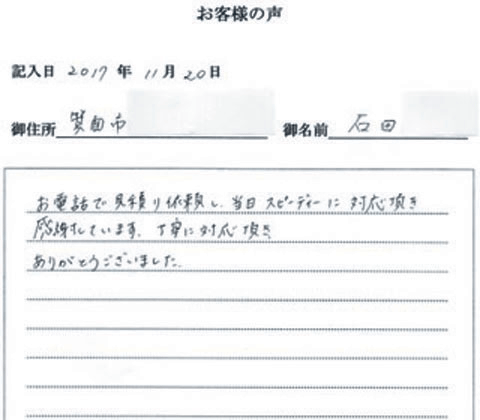 お客様の声
記入日 2017 年 11月 20日
御住所 箕面市 御名前 石田
お電話で見積り依頼し、当日スピーディーに対応頂き
感謝しています。丁寧に対応頂き
ありがとうございました。